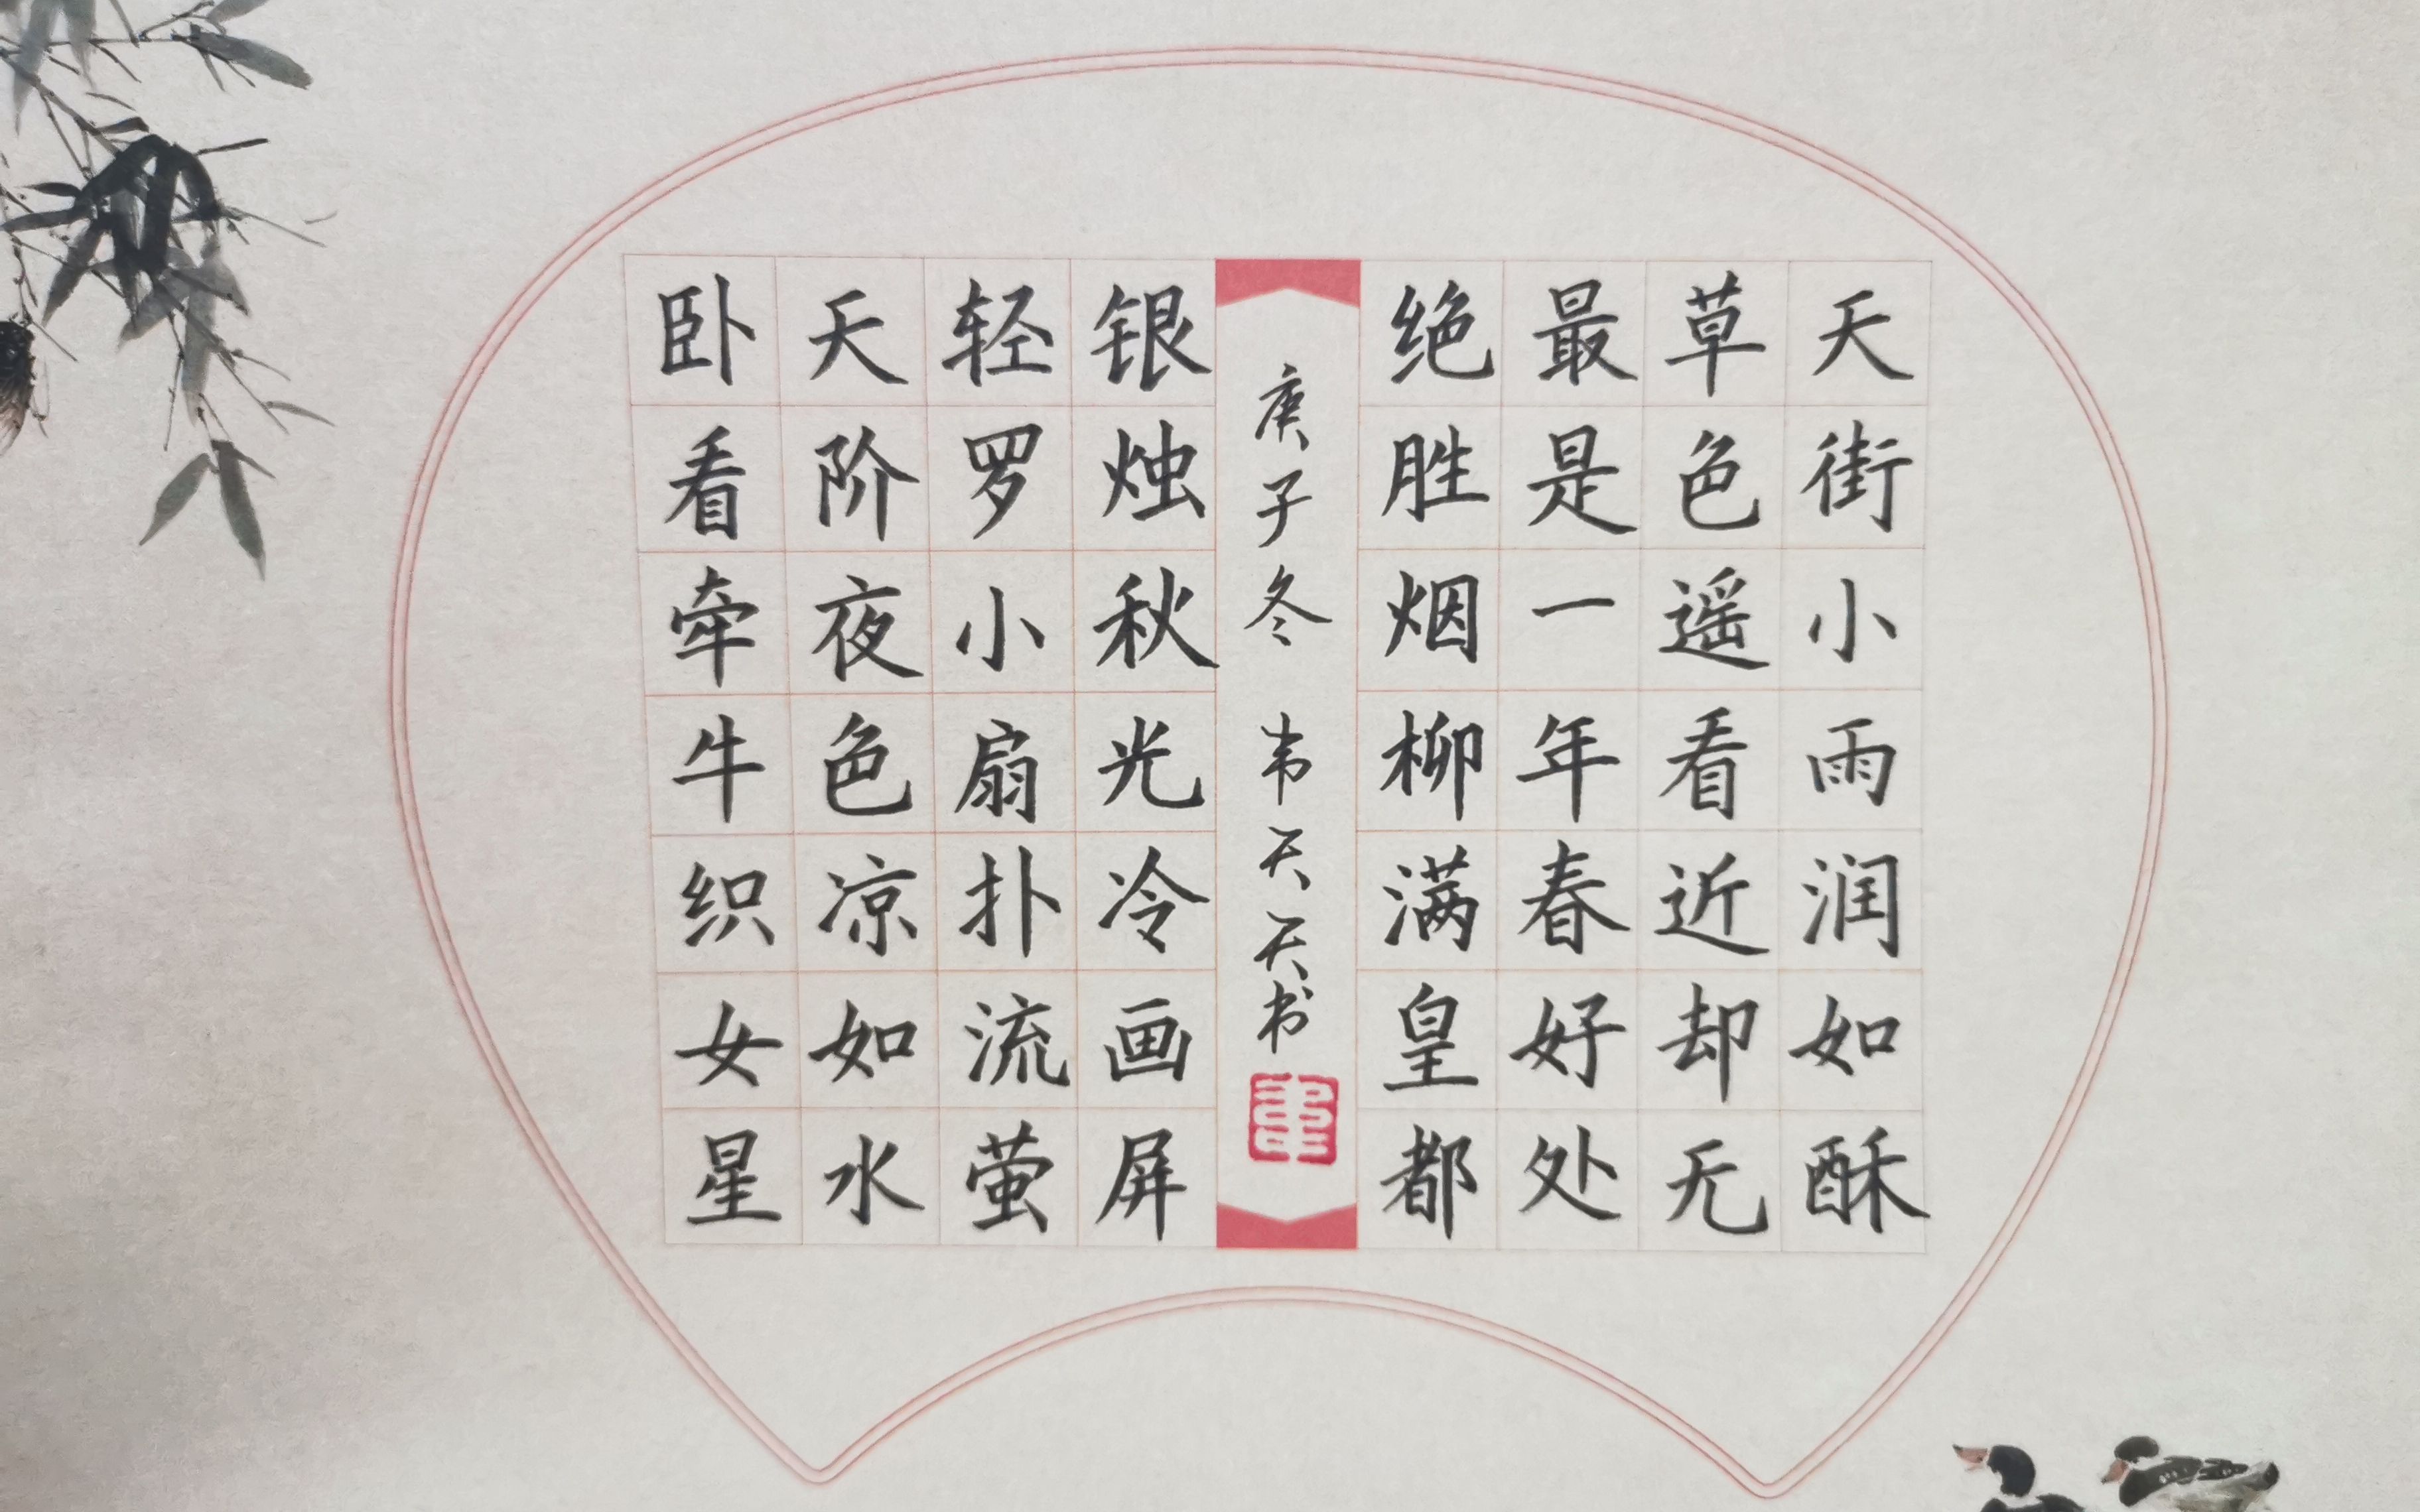 天街小雨润如酥
草色遥看近却无
最是一年春好处
绝胜烟柳满皇都
庚子冬 韦天天书
银烛秋光冷画屏
轻罗小扇扑流萤
天阶夜色凉如水
卧看牵牛织女星